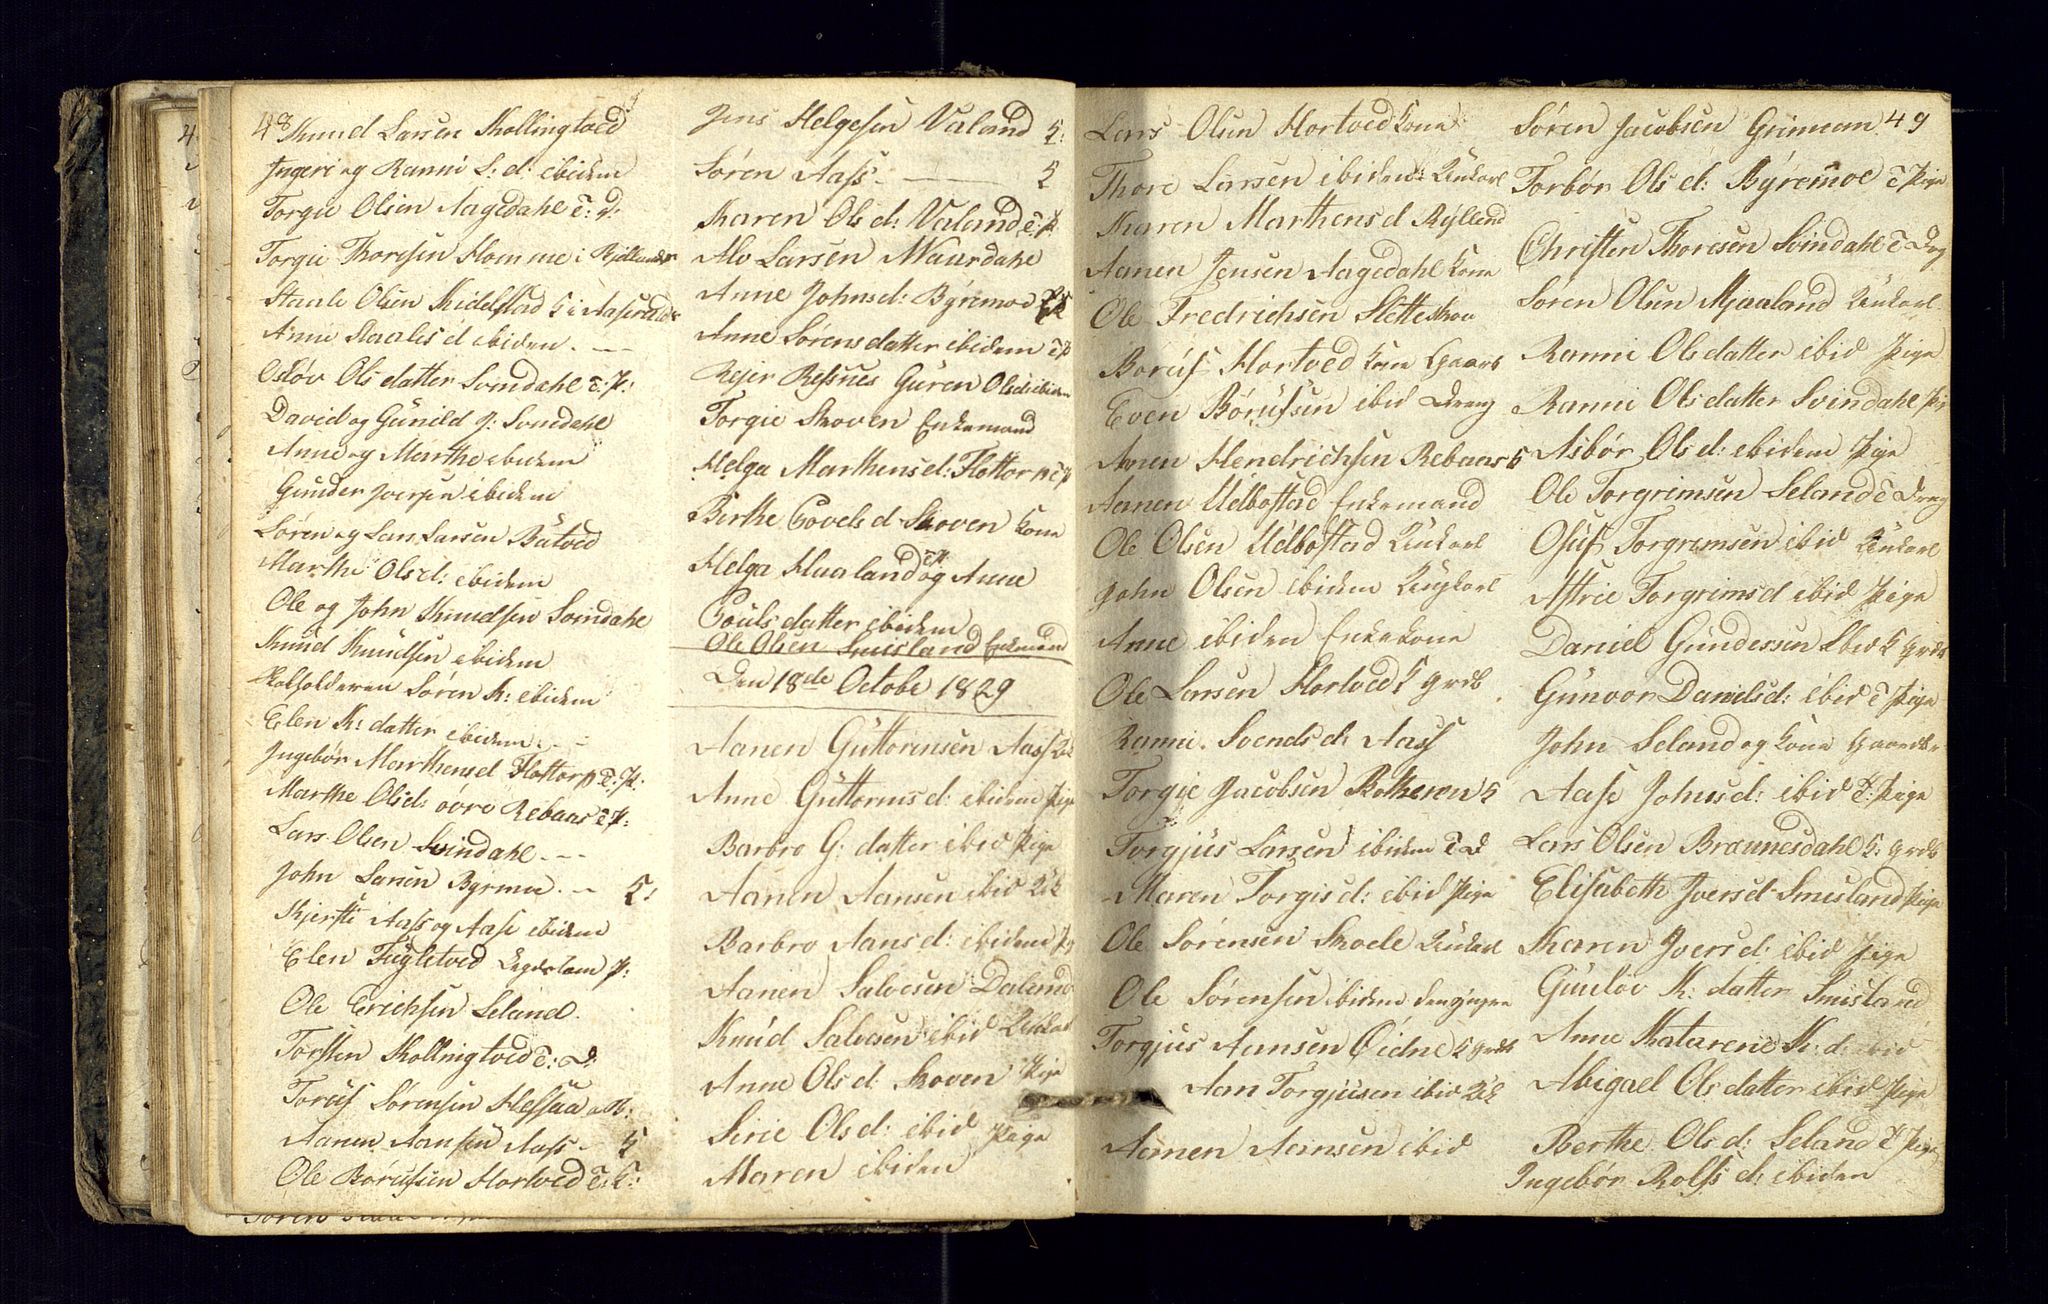 48
Knud Larsen Skollingtved
Ingeri og Ranni L: d: ibidem
Torgie Olsen Aagedahl T: D:
Torgie Thoresen Homme i Bjelland
Staale Olsen Kidelstad K i Aaserald
Anne Staales d ibidem. —
Osløv Olsdatter Svindahl T: P:
David og Günild J: Svindahl
Anne og Marthe ibidem
Gunder Joersen ibidem
Søren og Lars Larsen Bütved
Marthe Ols d: ibidem
Ole og John Knudsen Svindahl
Knüd Knüdsen ibidem
Søren K: ibidem
Elen K: datter ibidem. —
Ingebør Marthens d Flottorp T: P:
Marthe Ols d: øvre Rebaas T P:
Lars Olsen Svindahl. —
John Larsen Byrmoe. — K:
Kjersti Aass og Aase ibidem
Elen Fügletved Legdslem P:
Ole Erichsen Seland.
Torsten Skollingtved T: D:
Torüf Sørensen Hessaa
Aanen Aansen Aass — K
Ole Børüfsen Hortved T: K:
Jens Helgesen Valand K:
Søren Aass. — K
Karen Ols d: Valand T: P
Alv Larsen Naurdahl
Anne Johns d: Byremoe
Anne Sørensdatter ibidem T P
Rejer Ressnes Güren Olsd: ibidem
Torgie Skoven Enkemand
Helga Marthens d: Flottorp T P
Birthe Govels d Skoven Kone
Helga Haaland og Anne
Poulsdatter ibidem
Ole Olsen Smisland Enkemand
Den 18de Octobe 1829
Aanen Güttormsen Aass
Anne Güttorms d: ibidem Pige
Barbro G: datter ibid Pige
Aanen Aansen ibid
Barbro Aans d: ibidem
Aanen Salvesen Daland
Knüd Salvesen ibid
Anne Ols d: Skoven Pige
Sirie Ols d: ibid Pige
Maren ibidem
Lars Olsen Hortved Kone
Thore Larsen ibidem Ünkarl
Karen Marthens d Rylland
Aanen Jensen Aagedahl Kone
Ole Fredrichsen Sletteskou
Børüf Hortved Kone Gaarb
Even Børüfsen ibid Dreng
Aanen Hendrichsen Rebaas K
Aanen Üdbostad Enkemand
Ole Olsen Üdbostad Ünkarl
John Olsen ibidem Üngkarl
Anne ibidem Enkekone
Ole Larsen Hortved K grdb
Ranni. Svends d: Aass
Torgie Jacobsen Rotheren K
Torgjus Larsen ibidem T D
Maren Torgis d: ibid Pige
Ole Sørensen Skoele Ünkarl
Ole Sørensen ibidem
Torgjus Aansen Øidne K grdb
Aan Torgjusen ibid
Aanen Aansen ibid
49
Søren Jacobsen Grimem
Torbør Ols d: Byremoe T Pige
Christen Thoresen Svindahl T Dreng
Søren Olsen Mjaaland Ünkarl
Ranni Olsdatter ibid Pige
Ranni Olsdatter Svindahl
Asbør Ols d: ibidem Pige
Ole Torgrimsen Seland T Dreng
Osüf Torgrimsen ibid Ünkarl
Astrie Torgrims d ibid Pige
Daniel Gündersen ibid K grdb
Günvor Daniels d: ibid T Pige
John Seland og Kone Gaardb
Aase Johns d: ibid T: Pige
Lars Olsen Braunesdahl K: grdb
Elisabeth Joers d Smisland Pige
Karen Joers d: ibid Pige
Günløv K: datter Smisland
Anne Katarene K: d: ibid
Abigael Olsdatter ibid Pige
Berthe Ols d: Seland T Pige
Ingebør Rolfs d: ibidem